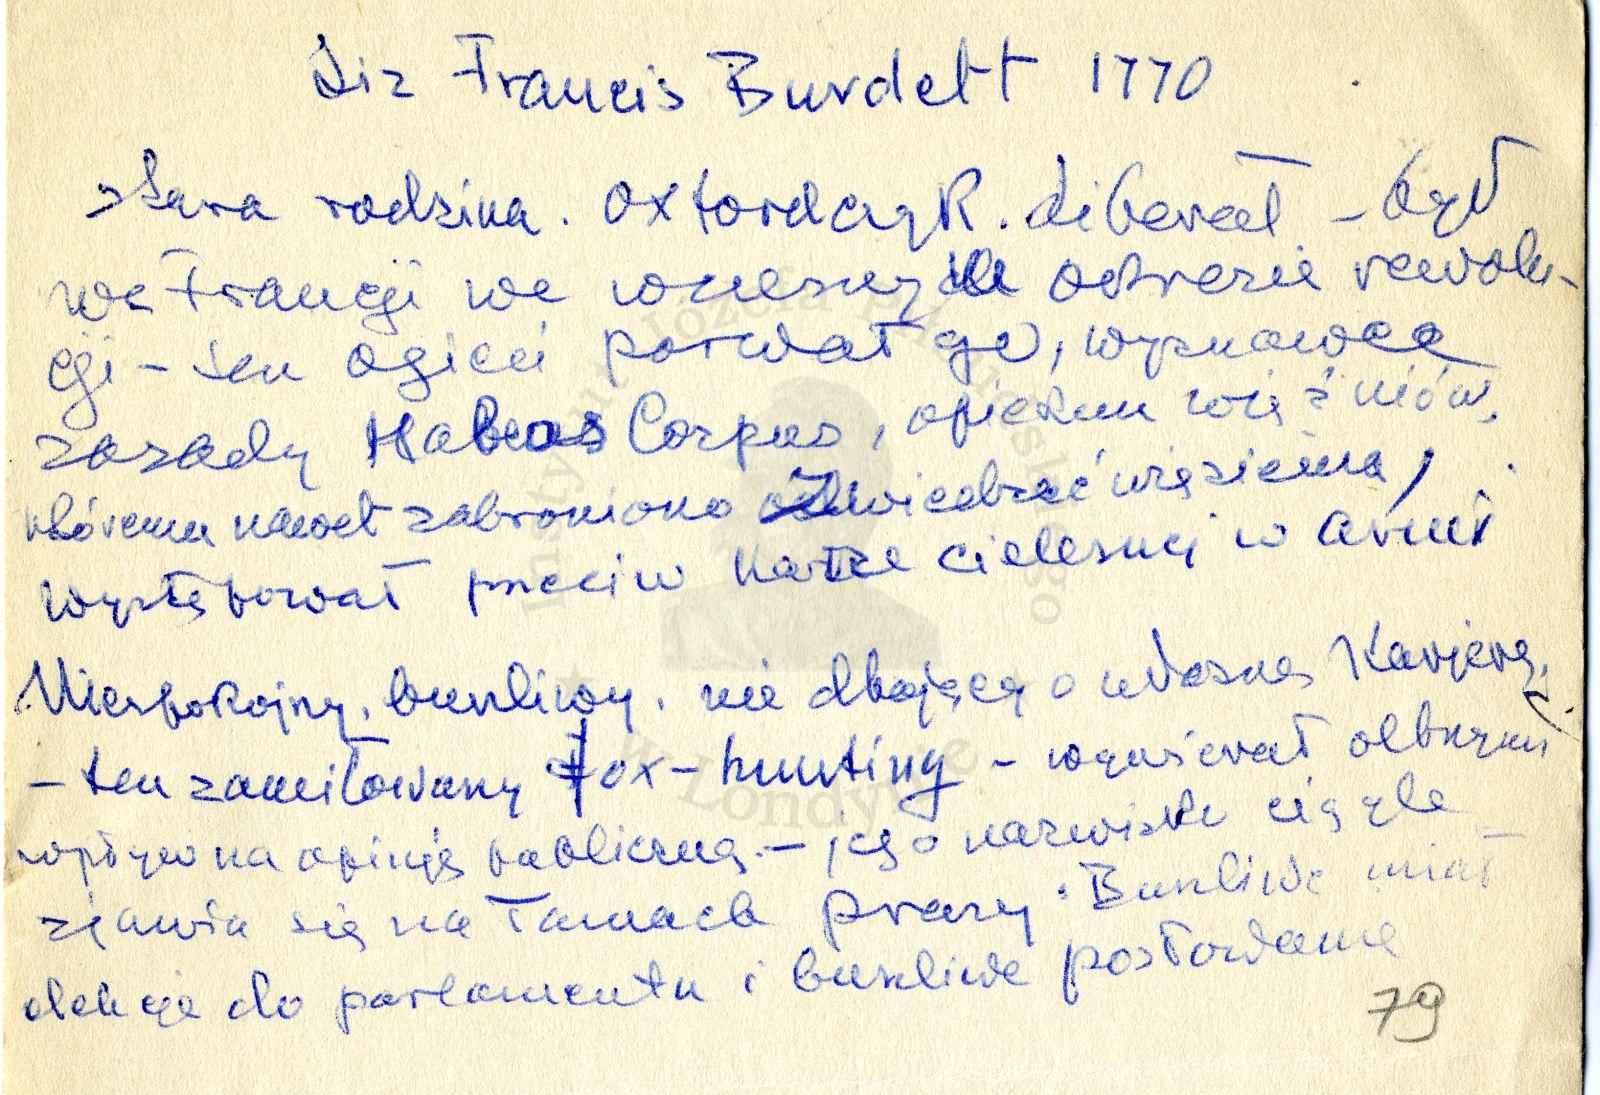 Sir Francis Burdett 1770
stara rodzina. Oxfordczyk. Liberał – był
we Francji we wczesnym okresie rewolu-
cji – ten ogień porwał go, wyznawca
zasady Habeas Corpus, opiekun więźniów,
któremu nawet zabroniono odwiedzać więzienia,
występował przeciw karze cielesnej w armii
Niespokojny, burzliwy, nie dbający o własną karjerę,
– ten zamiłowany fox-hunting – wywierał olbrzymi
wpływ na opinję publiczną – jego nazwisko ciągle
zjawia się na łamach prasy. Burzliwe miał
elekcje do parlamentu i burzliwe posłowanie
79
Instytut Józefa Piłsudskiego
w Londynie